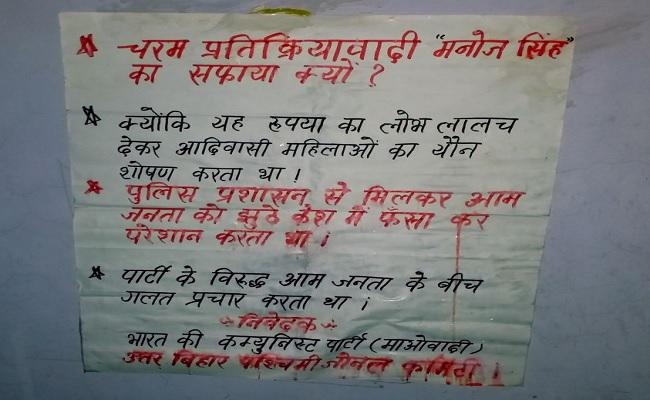 * चरम प्रतिक्रियावादी "मनोज सिंह"
का सफाया क्यों ?
* क्योंकि यह रुपया का लोभ लालच
देकर आदिवासी महिलाओं का यौन
शोषण करता था !
* पुलिस प्रशासन से मिलकर आम
जनता को झुठे केश में फँसा कर
परेशान करता था ।
* पार्टी के विरुद्ध आम जनता के बीच
गलत प्रचार करता था ।
निवेदक
भारत की कम्युनिस्ट पार्टी (माओवादी)
उत्तर बिहार पश्चिमी जोनल कमिटी ।